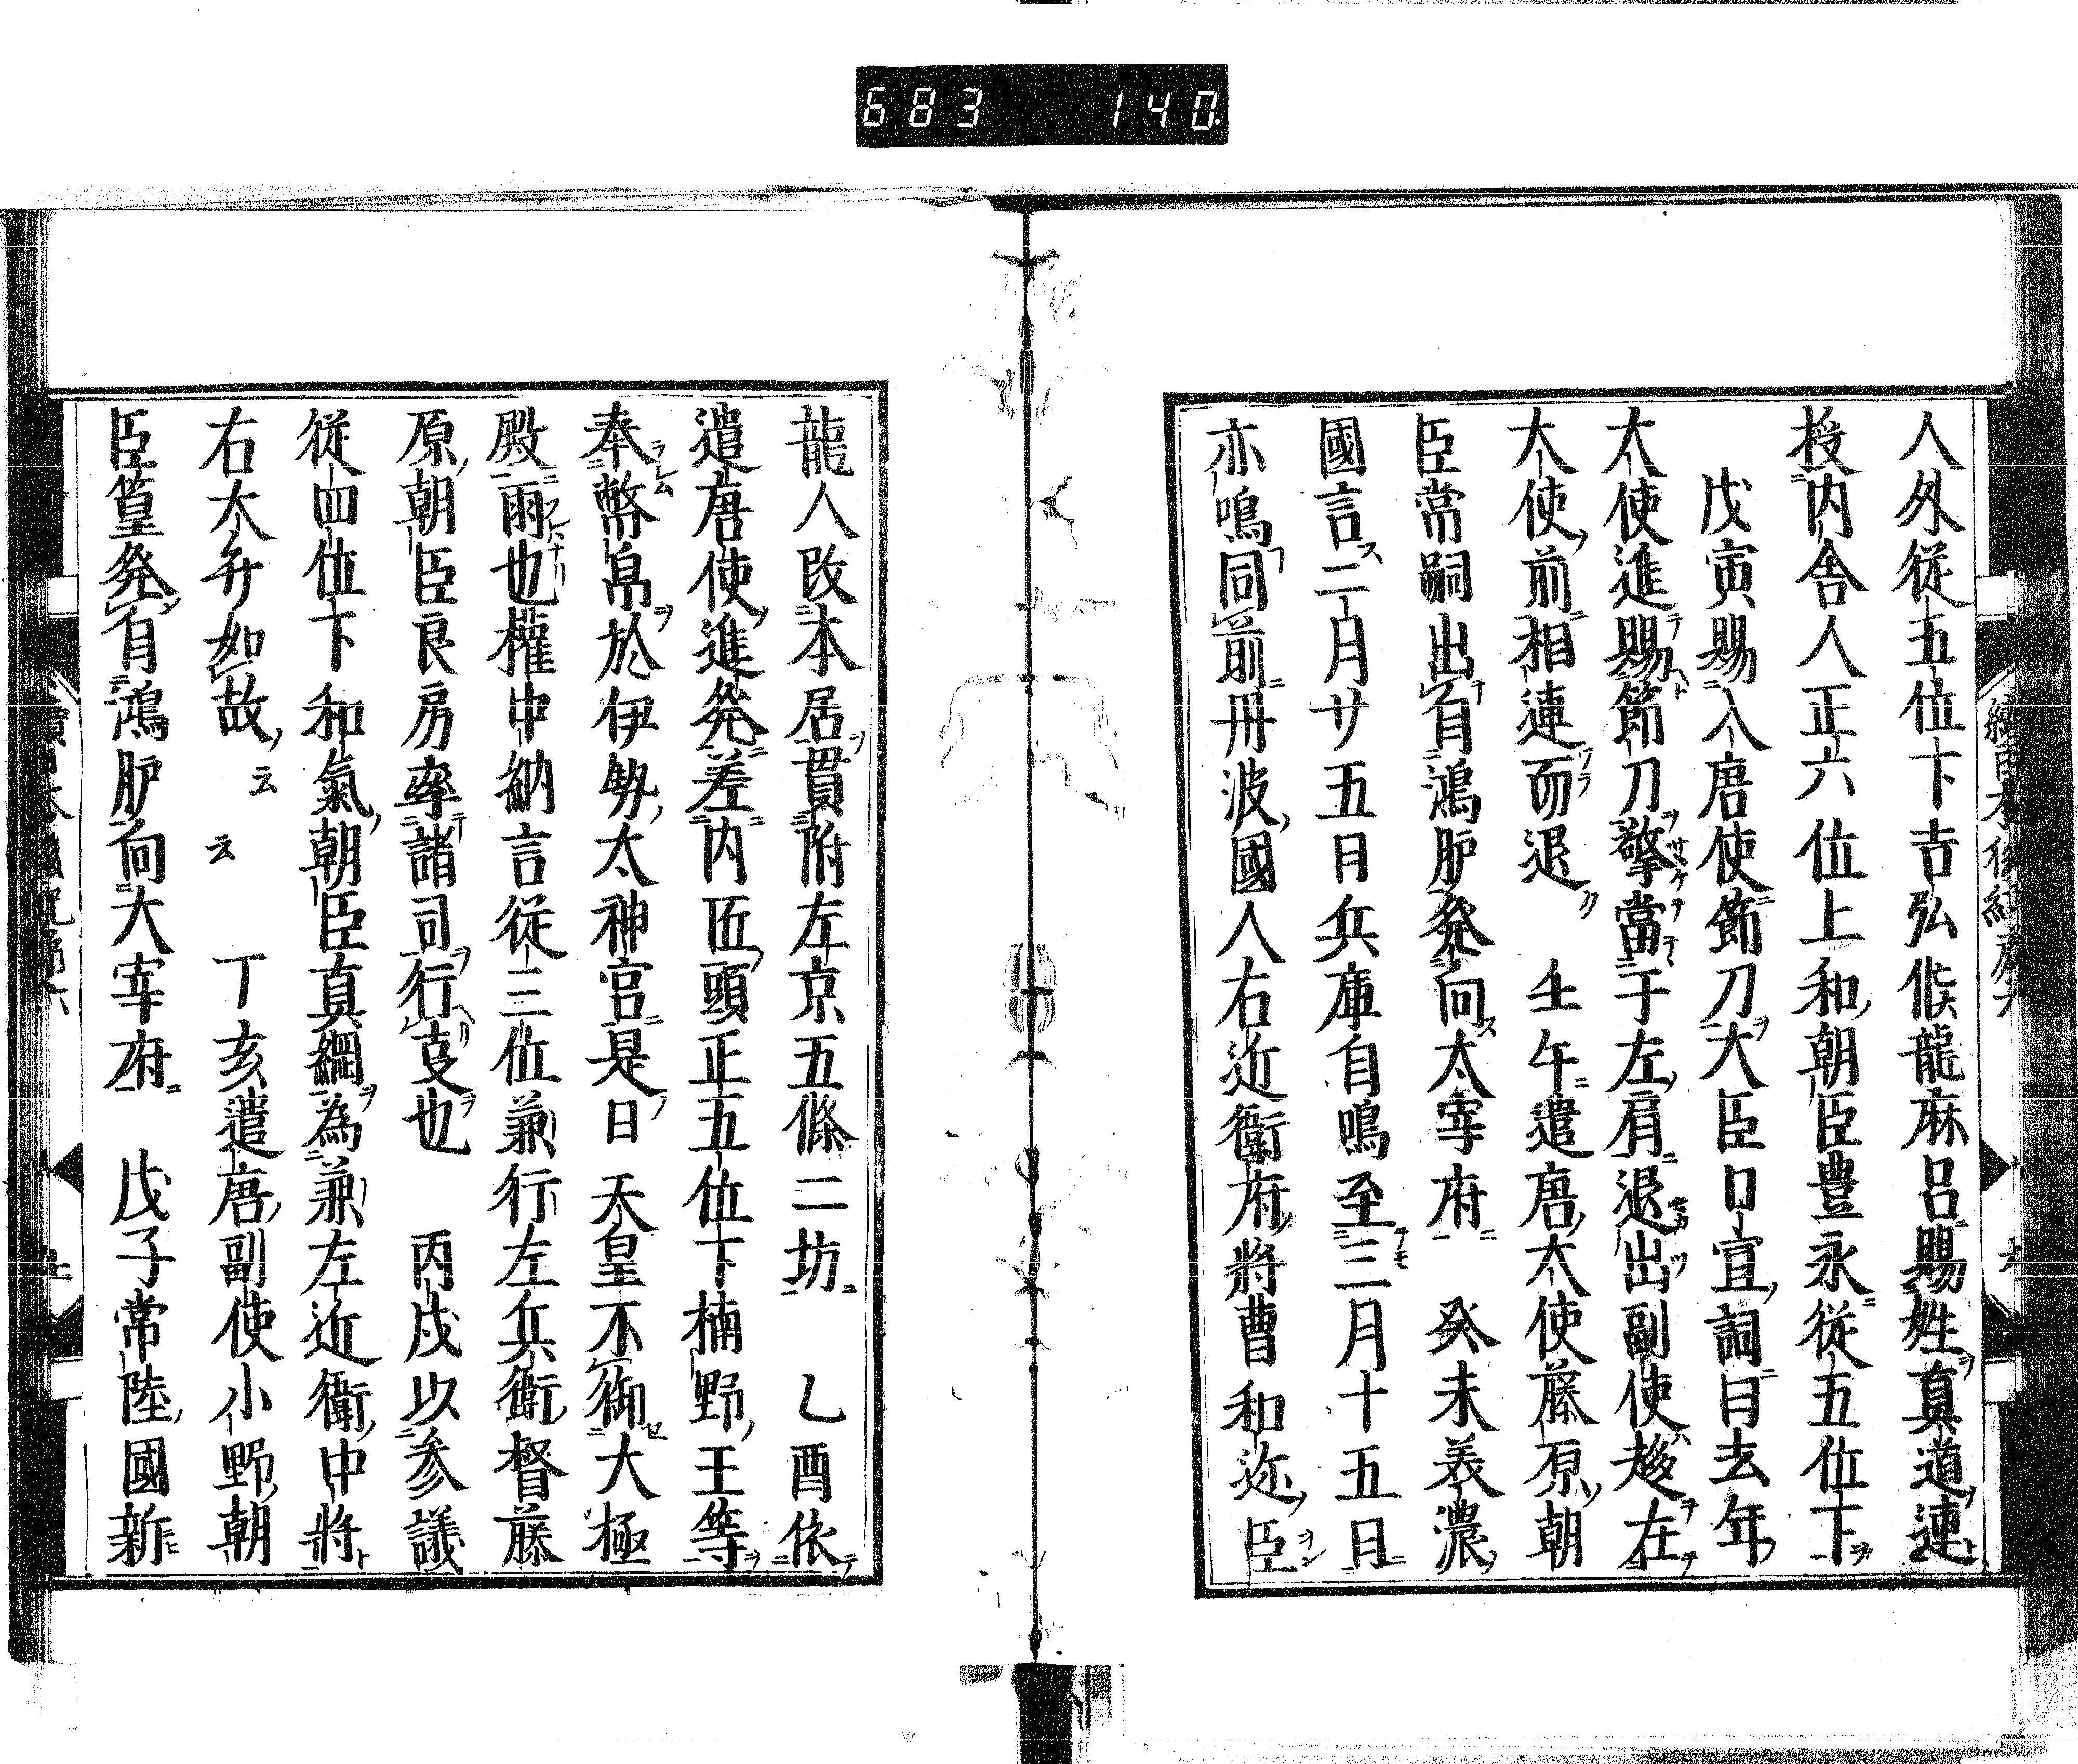 683 140
人外従五位下吉弘侯龍麻呂賜姓真道連
授内舎人正六位上和朝臣豊永従五位下
戊寅賜入唐使節刀大臣口宣詞目去年
大使進賜節刀擎當于左肩退出副使趍在
大使前相連而退 壬午遣唐大使藤原朝
臣常嗣出自鴻胪発向太宰府 癸未美濃
國言二月廿五日兵庫自鳴至三月十五日
亦鳴同前丹波國人右近衛府將曹和迩臣
龍人改本居貫附左京五條二坊 乙酉依
遣唐使進発差内匠頭正五位下楠野王等
奉幣帛於伊勢太神宮是日 天皇不御大極
殿雨也權中納言従三位兼行左兵衛督藤
原朝臣良房率諸司行支也 丙戌以参議
従四位下和氣朝臣真綱為兼左近衛中將
右大弁如故云云 丁亥遣唐副使小野朝
臣篁発自鴻胪向大宰府 戊子常陸國新